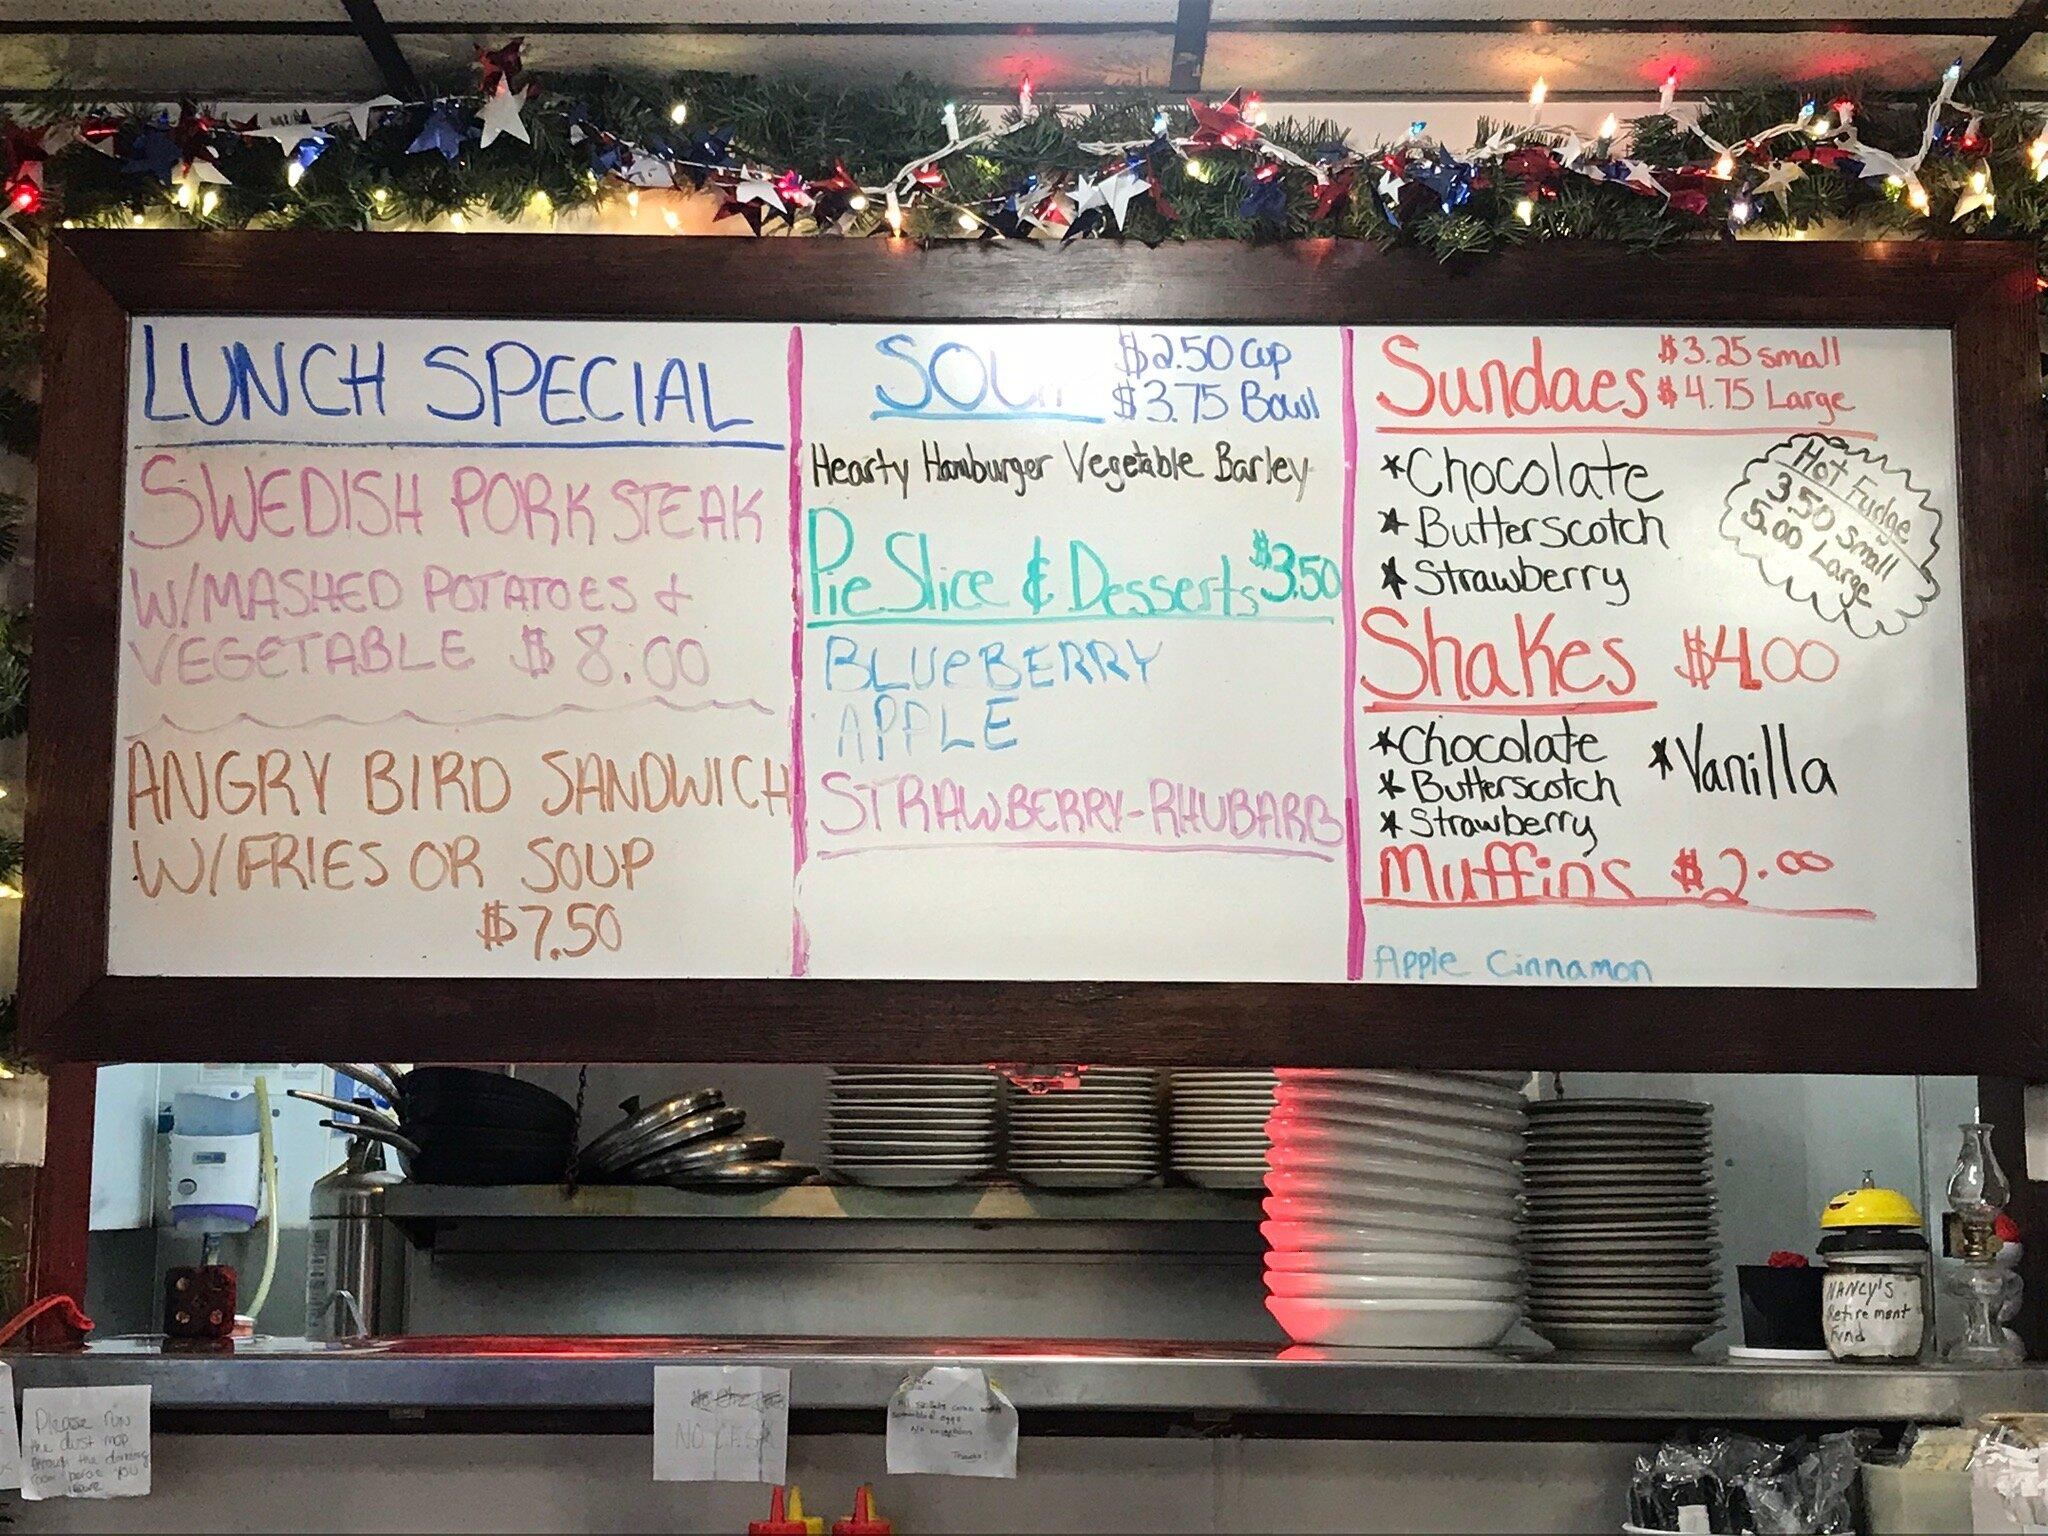 LUNCH SPECIAL
SWEDISH PORK STEAK
W/MASHED POTATOES &
VEGETABLE $8.00
ANGRY BIRD SANDWICH
W/FRIES OR SOUP
$7.50
SOUP
$2.50 Cup
$3.75 Bowl
Hearty Hamburger Vegetable Barley
Pie Slice & Desserts $3.50
BLUEBERRY
APPLE
STRAWBERRY-RHUBARB
Sundaes
$3.25 small
$4.75 Large
*Chocolate
*Butterscotch
*Strawberry
Hot Fudge
3.50 small
5.00 Large
Shakes $4.00
*Chocolate *Vanilla
*Butterscotch
*Strawberry
Muffins $2.00
Apple Cinnamon
NANCY'S
Retirement
Fund
Please run
the dust mop
through the dining
room before you
leave
Scrambled eggs
Thanks!